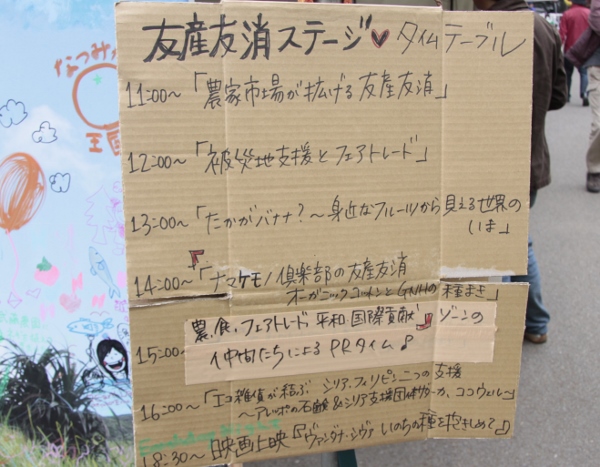 友産友消ステージ♥ タイムテーブル
11:00～「農家市場が拡げる友産友消」
12:00～「被災地支援とフェアトレード」
13:00～「たかがバナナ?～身近なフルーツから見える世界の
いま」
14:00～「ナマケモノ倶楽部の友産友消
オーガニックコットンとGNHの種まき」
農、食、フェアトレード 平和・国際貢献 ゾーンの
15:00～ 仲間たちによるPRタイム♪
16:00～「エコ雑貨が結ぶ シリア、フィリピン二つの支援
～アレッポの石鹸&シリア支援団体サダーカ、ココウェル～」
18:30～ 映画上映『ヴァンダナ・シヴァ いのちの種を抱きしめて』
なつみかん
王国